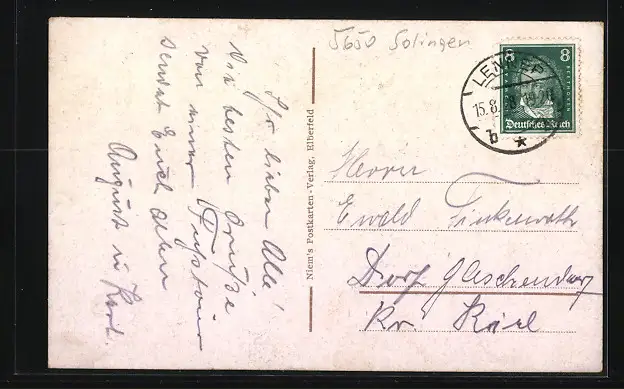 Ihr lieben Alle!
Die besten Grüße
von einer Fußtour
sendet Euch allen
August u.
Niem's Postkarten-Verlag, Elberfeld
5650 Solingen
8 8
BEETHOVEN
Deutsches Reich
LENNEP
15.8.28
b ★
Herrn
Ewald Finkenrath
Dorf
Kr.